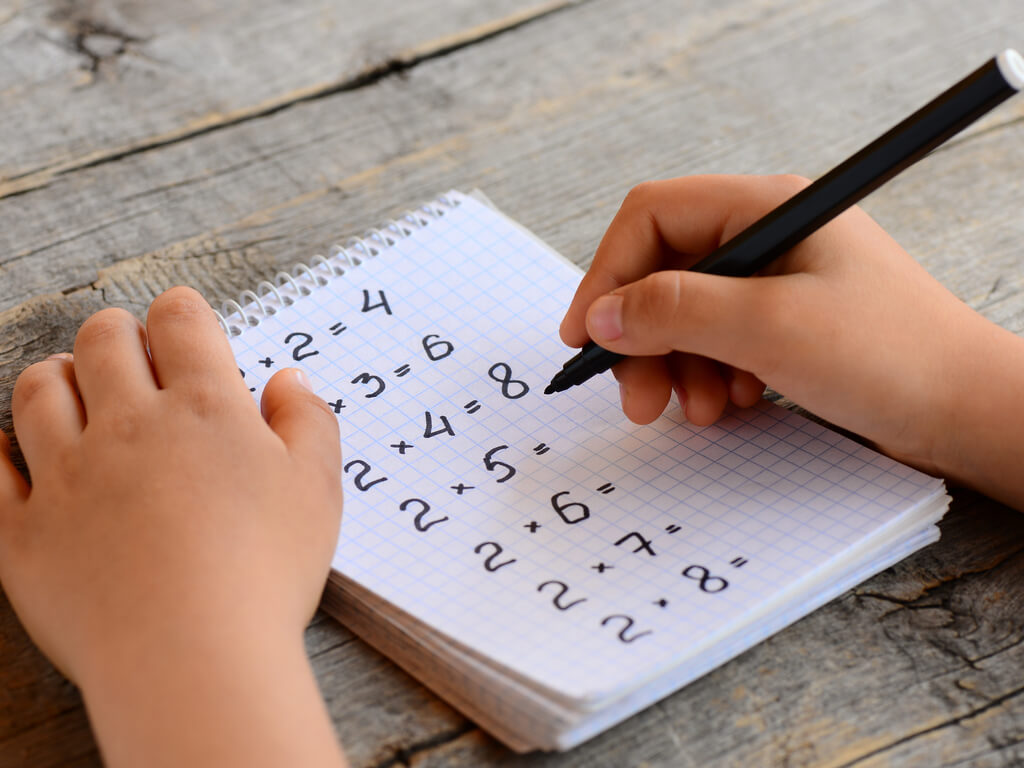 2 × 2 = 4
× 3 = 6
2 × 4 = 8
2 × 5 =
2 × 6 =
2 × 7 =
2 × 8 =